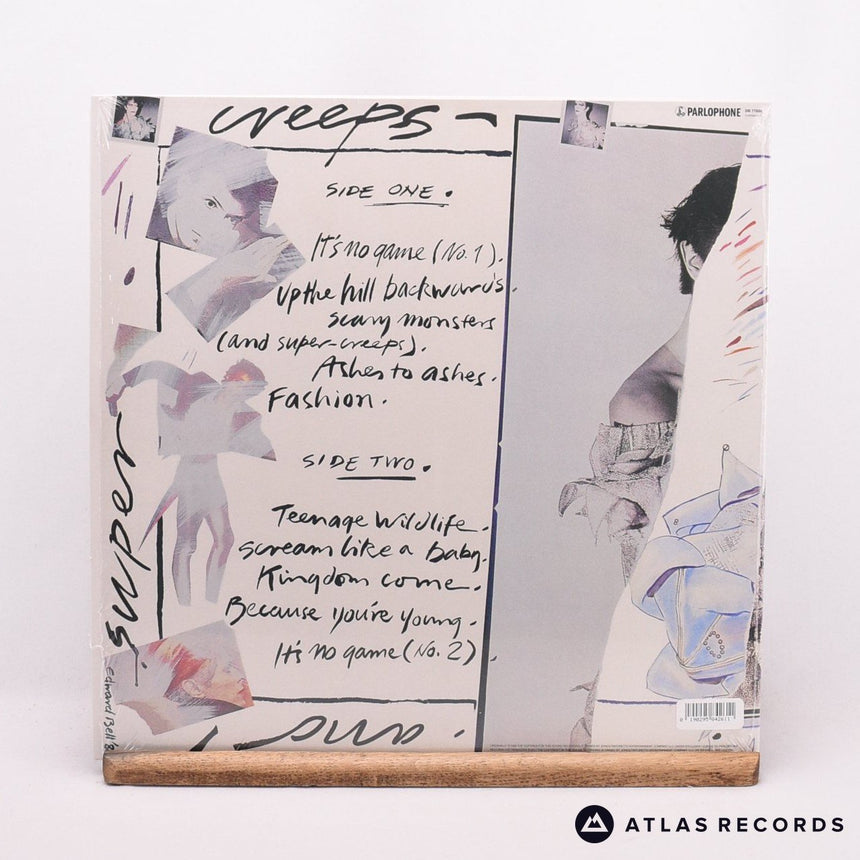 creeps -
PARLOPHONE
SIDE ONE.
It's no game (No. 1).
Up the hill backwards.
Scary monsters
(and super-creeps).
Ashes to ashes.
Fashion.
SIDE TWO.
Teenage wildlife.
Scream like a baby.
Kingdom come.
Because you're young.
It's no game (No. 2).
super
Edward Bell
and
ATLAS RECORDS